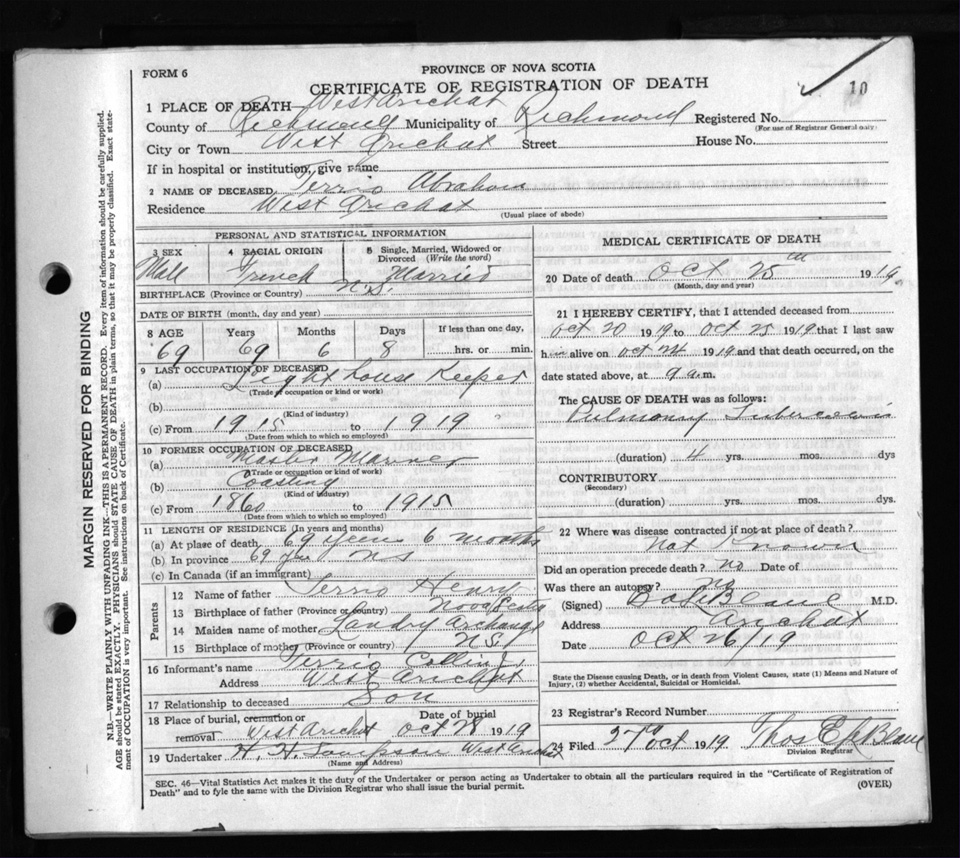 FORM 6
PROVINCE OF NOVA SCOTIA
CERTIFICATE OF REGISTRATION OF DEATH
10
1 PLACE OF DEATH West Arichat
County of Richmond Municipality of Richmond Registered No.
(For use of Registrar General only)
City or Town West Arichat Street House No.
If in hospital or institution, give name
2 NAME OF DECEASED Terrio Abraham
Residence West Arichat
(Usual place of abode)
PERSONAL AND STATISTICAL INFORMATION
3 SEX 4 RACIAL ORIGIN 5 Single, Married, Widowed or Divorced (Write the word)
Mall French Married
BIRTHPLACE (Province or Country) N.S.
DATE OF BIRTH (month, day and year)
8 AGE Years Months Days If less than one day,
69 69 6 8 hrs. or min.
9 LAST OCCUPATION OF DECEASED
(a) Light House Keeper
(Trade or occupation or kind or work)
(b)
(Kind of industry)
(c) From 1915 to 1919
(Date from which to which so employed)
10 FORMER OCCUPATION OF DECEASED
(a) Master Mariner
(Trade or occupation or kind of work)
(b) Coasting
(Kind of industry)
(c) From 1860 to 1915
(Date from which to which so employed)
11 LENGTH OF RESIDENCE (In years and months)
(a) At place of death 69 years 6 months
(b) In province 69 yrs N S
(c) In Canada (if an immigrant)
Parents
12 Name of father Terrio Henry
13 Birthplace of father (Province or country) Nova Scotia
14 Maiden name of mother Landry Archange
15 Birthplace of mother (Province or country) N.S.
16 Informant's name Terrio Collin J
Address West Arichat
17 Relationship to deceased Son
18 Place of burial, cremation or removal West Arichat Date of burial Oct 28 1919
19 Undertaker H. H. Sampson West Arichat
(Name and Address)
MEDICAL CERTIFICATE OF DEATH
20 Date of death Oct 25th 1919
(Month, day and year)
21 I HEREBY CERTIFY, that I attended deceased from
Oct 20 1919 to Oct 25 1919 that I last saw
him alive on Oct 24 1919 and that death occurred, on the
date stated above, at 9 a.m.
The CAUSE OF DEATH was as follows:
Pulmonary
(duration) 4 yrs. mos. dys
CONTRIBUTORY
(Secondary)
(duration) yrs. mos. dys.
22 Where was disease contracted if not at place of death?
Not Known
Did an operation precede death? no Date of
Was there an autopsy? no
(Signed) M.D.
Address Arichat
Date Oct 26/19
State the Disease causing Death, or in death from Violent Causes, state (1) Means and Nature of
Injury, (2) whether Accidental, Suicidal or Homicidal.
23 Registrar's Record Number
24 Filed 27th Oct 1919 Thos
Division Registrar
SEC. 46—Vital Statistics Act makes it the duty of the Undertaker or person acting as Undertaker to obtain all the particulars required in the "Certificate of Registration of
Death" and to fyle the same with the Division Registrar who shall issue the burial permit.
(OVER)
MARGIN RESERVED FOR BINDING
N.B.—WRITE PLAINLY WITH UNFADING INK—THIS IS A PERMANENT RECORD. Every item of information should be carefully supplied.
AGE should be stated EXACTLY. PHYSICIANS should STATE CAUSE OF DEATH in plain terms, so that it may be properly classified. Exact statement
of OCCUPATION is very important. See instructions on back of Certificate.